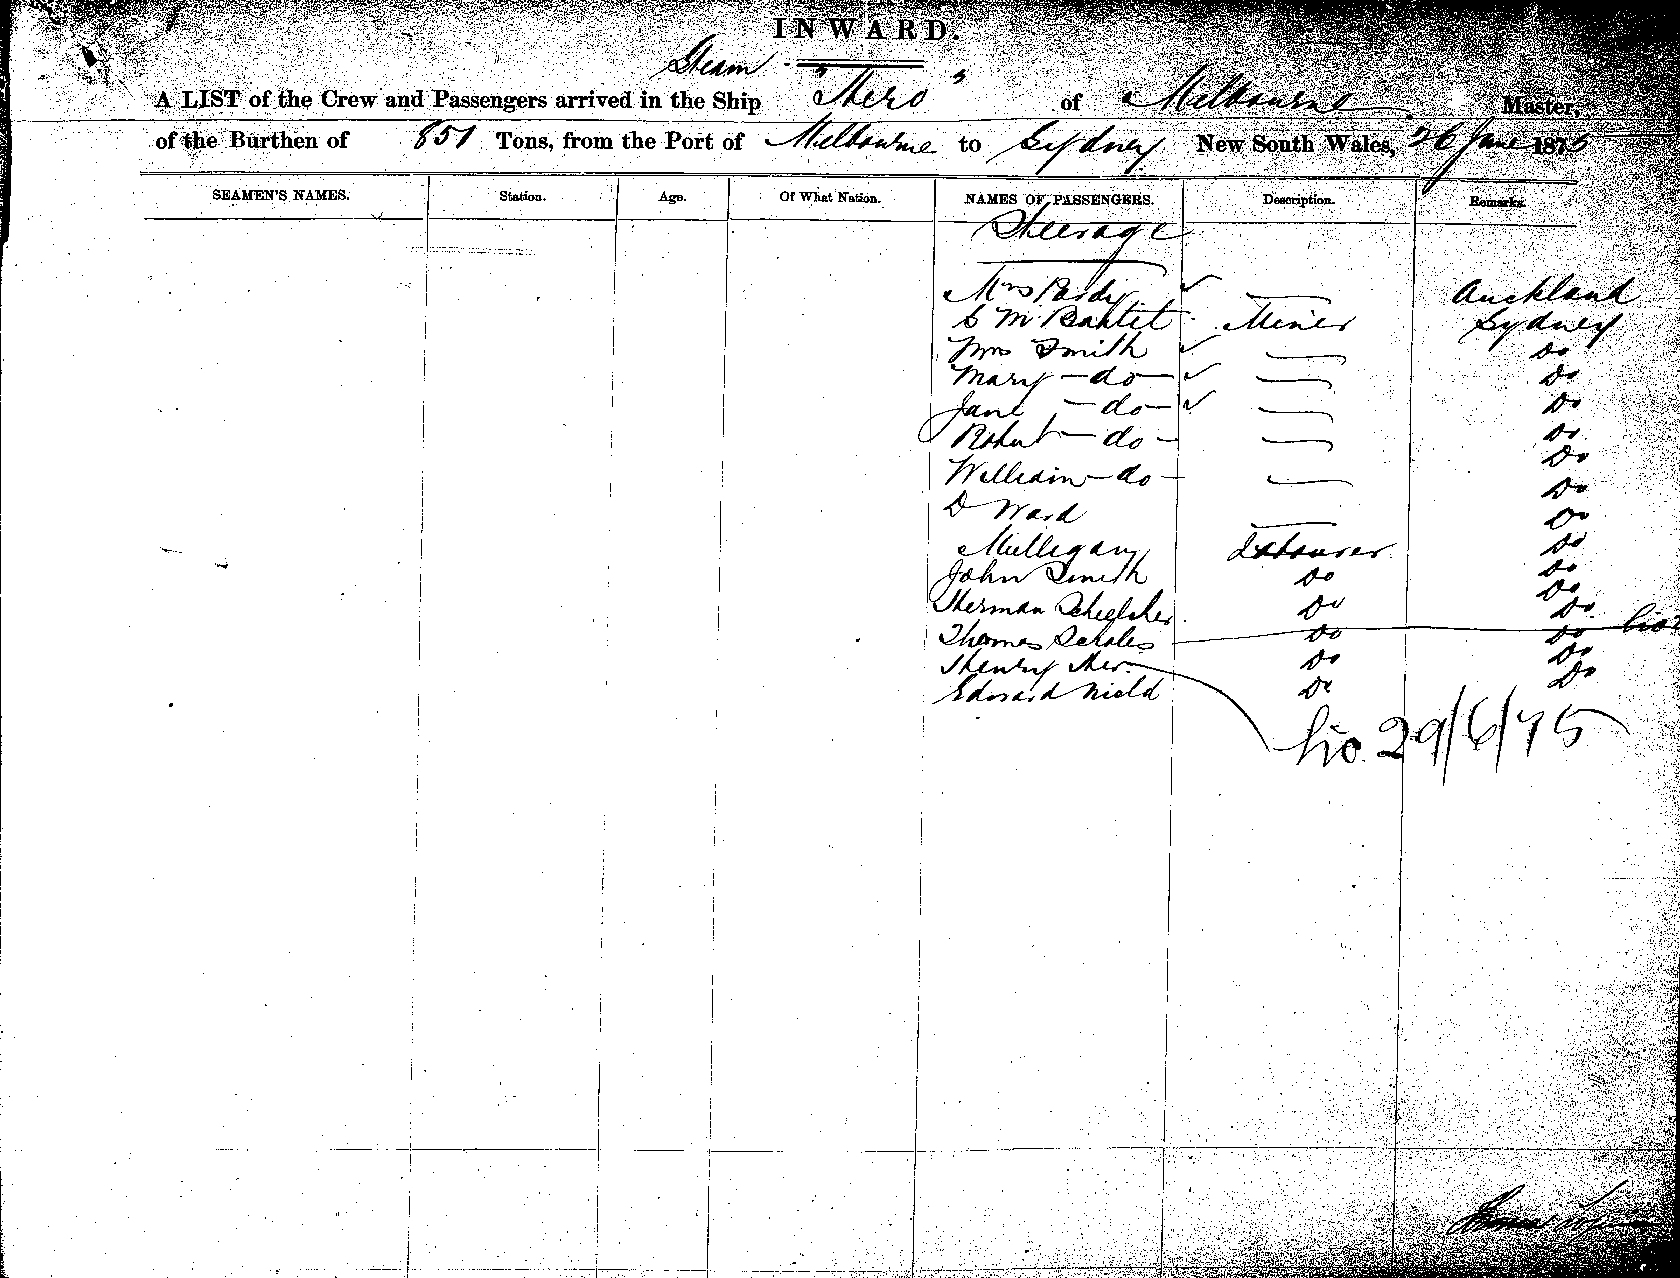 INWARD.
Steam
A LIST of the Crew and Passengers arrived in the Ship "Hero" of Melbourne, Master,
of the Burthen of 851 Tons, from the Port of Melbourne to Sydney New South Wales, 26 June 1875
SEAMEN'S NAMES. Station. Age. Of What Nation. NAMES OF PASSENGERS. Description. Remarks.
Steerage
Mrs Purdy Auckland
C M Miner Sydney
Mrs Smith Do
Mary - do - Do
Jane - do - Do
Robert - do - Do
William - do - Do
D Ward Do
Mulligan Labourer Do
John Smith Do Do
Herman Do Do
Thomas Scholes Do Do
Henry Do Do
Edward Nield Do Do
29/6/75